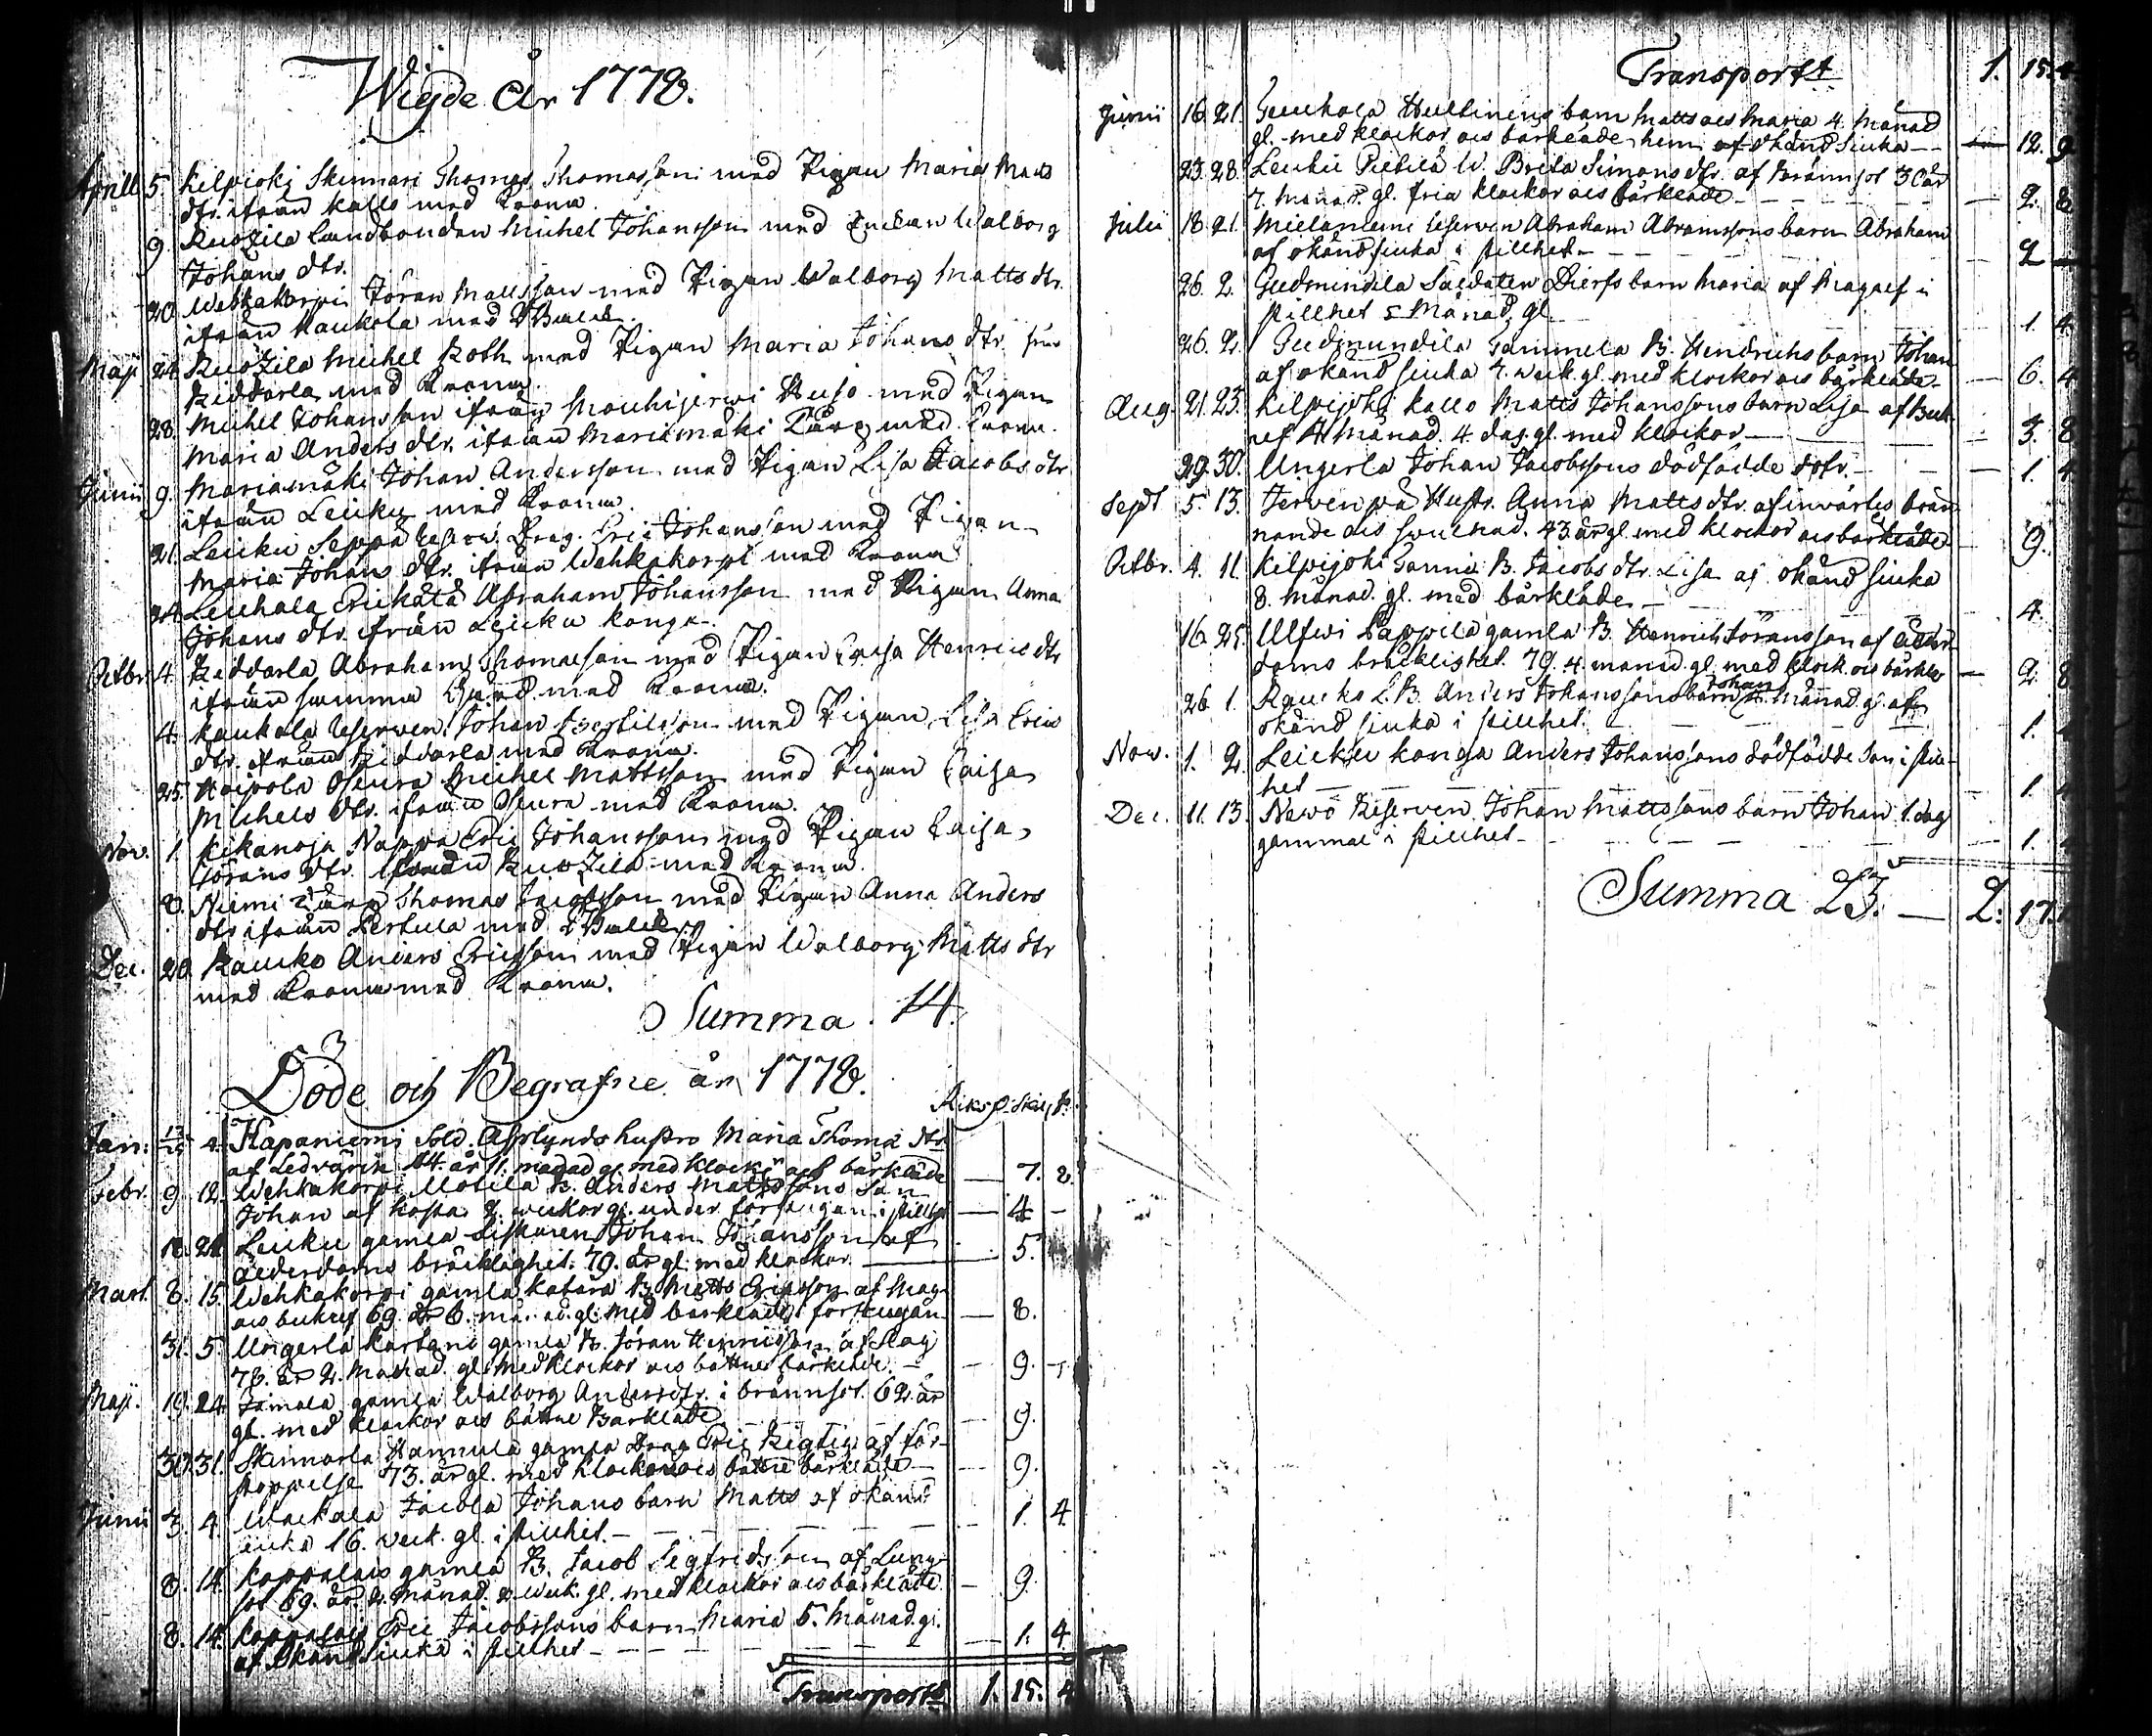 Wigde år 1778.
Aprill 5. Kilpiokj Skinnari Thomas Thomasson med Pigan Maria Matts
dtr. ifrån Kallo med Krona.
9. Ruotzila Landbonden Michel Johansson med Enckan Walborg
Johans dtr.
20 Wehkakorpi Jöran Mattsson med Pigan Walborg Matts dtr.
ifrån Kaukola med
Maji 24 Ruotzila Michel Roth med Pigan Maria Johans dtr. från
Riddarla med Krona.
28. Michel Johansson ifrån Mouhijerwi Hujo med Pigan
Maria Anders dtr. ifrån Mariamäki med Krona.
Junii 9. Mariamäki Johan Andersson med Pigan Lisa Jacobs dtr
ifrån Leicku med Krona.
21. Leicku Seppä Drag. Eric Johansson med Pigan
Maria Johans dtr. ifrån Wehkakorpi med Krona
24 Leuhala Erickälä Abraham Johansson med Pigan Anna
Johans dtr. ifrån Leicku Konga.
Octbr. 4. Riddarla Abraham Thomasson med Pigan Caisa Henrics dtr
ifrån samma Gård med Krona.
4. Kaukola Reserven Johan Bertilsson med Pigan Lisa Erics
dtr. ifrån Riddarla med Krona.
25. Haipola Osura Michel Mattsson med Pigan Caisa
Michels dtr. ifrån Osura med Krona.
Nov. 1. Kikanoja Nappa Eric Johansson med Pigan Caisa
Jörans dtr. ifrån Ruotzila med Krona.
8. Niemi Thomas Jacobsson med Pigan Anna Anders
dtr ifrån Pertula med
Dec. 20 Raucko Anders Ericsson med Pigan Walborg Matts dtr
med Krona med Krona.
Summa. 14.
Döde och Begrafne år 1778.
Riksd. Skil. r.
Jan: 4. Kapaniemi Sold. Asplunds hustro Maria Thomæ dtr
af Ledvärk 44. år 11. månad gl. med klock. och bårkläde — 7. 8.
Febr. 9. 12. Wehkakorpi Uotila B. Anders Mattssons Son
Johan af hosta 9. weckor gl. under förstugan i stillhet — 4 –
18. 21 Leicku gamla Liskaren Johan Johansson af
ålderdoms bräcklighet. 79. år gl. med klockor. — 5.
Mart. 8. 15 Wehkakorpi gamla Katara B. Matts Ericsson af Mag-
och bukref 69. år 6. månad. gl. med bårkläde i förstugan — 8.
31. 5 Ungerla Kartano gamla B. Jöran Henricsson af Slag
76. år 2. månad. gl. med klockor och bättre bårkläde. — 9. –
Maji. 19. 24 Jamala gamla Walborg Andersdtr. i brännsot. 62. år
gl. med klockor och bättre Bårkläde — 9.
30. 31. Skinnarla Hannula gamla Drag. Eric Rigtig af för-
stoppelse 73. år gl. med klockor och bättre bårkläde — 9.
Junii 3. 4. Wackala Jacola Johans barn Matts af okänd
siuka 16. veck. gl. i stillhet. — 1. 4.
8. 14. Kappalais gamla B. Jacob Segfridsson af Lung-
sot 69. år 2. månad. 2. weck. gl. med klockor och bårkläde — 9.
8. 14. Kappalais Eric Jacobssons barn Maria 5. månad. gl.
af okänd siuka i stillhet — 1. 4.
Transportt 1. 15. 4
Transportt 1. 15. 4
Junii 16. 21. Hultinens barn Matts och Maria 4. Månad
gl. med klockor och bårkläde hem af okänd siuka — 12. 9
23. 28. Leicku Pietilä W. Brita Simons dtr. af Brännsot 30 år
7. månad. gl. fria klockor och bårkläde — 2. 8
Julii 18. 21. Mielaniemi Reserven Abraham Abramssons barn Abraham
af okänd siuka i stillhet — 2 —
26. 2. Gudmindila Soldaten Diers barn Maria af Magref i
stillhet 5 Månad. gl — 1. 4
26. 2. Gudmundila Gammela B. Hindrichs barn Johan
af okänd siuka 7. weck. gl. med klockor och bårkläde — 6. 4
Aug. 21. 23. Kilpijoki Kallo Matts Johanssons barn Lisa af Buk-
ref 4 Månad. 4. dag. gl. med klockor, — 3. 8
29. 30. Ungerla Johan Jacobssons dödfödde dotr. — 1. 4
Sept 5. 13. Jervenpä Hustr. Anna Matts dtr. af invärtes brän-
nande och swullnad. 43. år gl. med klockor och bårkläde — 9.
Octbr. 4. 11. Kilpijoki Sannu B. Jacobs dtr. Lisa af okänd siuka
8. månad. gl. med bårkläde. — 4.
16. 25. Ulfwi Pappila gamla B. Henrich Jöransson af ålder-
doms bräcklighet. 79. 4. månad gl. med klock. och bårkläde — 9. 8
26. 1. Raucko L. B. Anders Johanssons barn Johan Månad. gl. af
okänd siuka i stillhet. — 1.
Nov. 1. 2. Leicku Konga Anders Johanssons dödfödde Son i still-
het — 1.
Dec. 11. 13. Nawo Reserven Johan Mattssons barn Johan 1. dag
gammal i stillhet — 1.
Summa 23. — 2. 17.